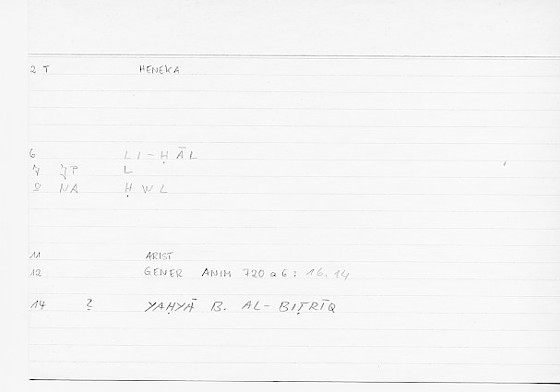 2 T HENEKA
6 LI-ḤĀL
7 JP L
8 NA ḤWL
11 ARIST
12 GENER ANIM 720 a 6 : 16.14
14 2 YAḤYĀ B. AL-BIṬRĪQ